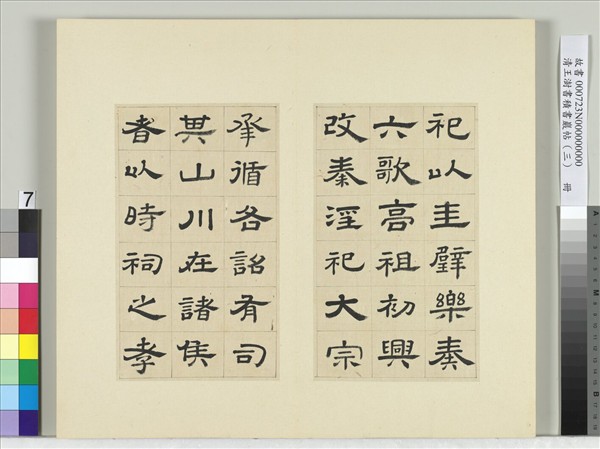 祀以圭璧樂奏
六歌高祖初興
改秦淫祀大宗
承循各詔有司
其山川在諸侯
者以時祠之孝
故書 000723N000000000
清王澍書積書巖帖（三） 冊
7
A
M
B